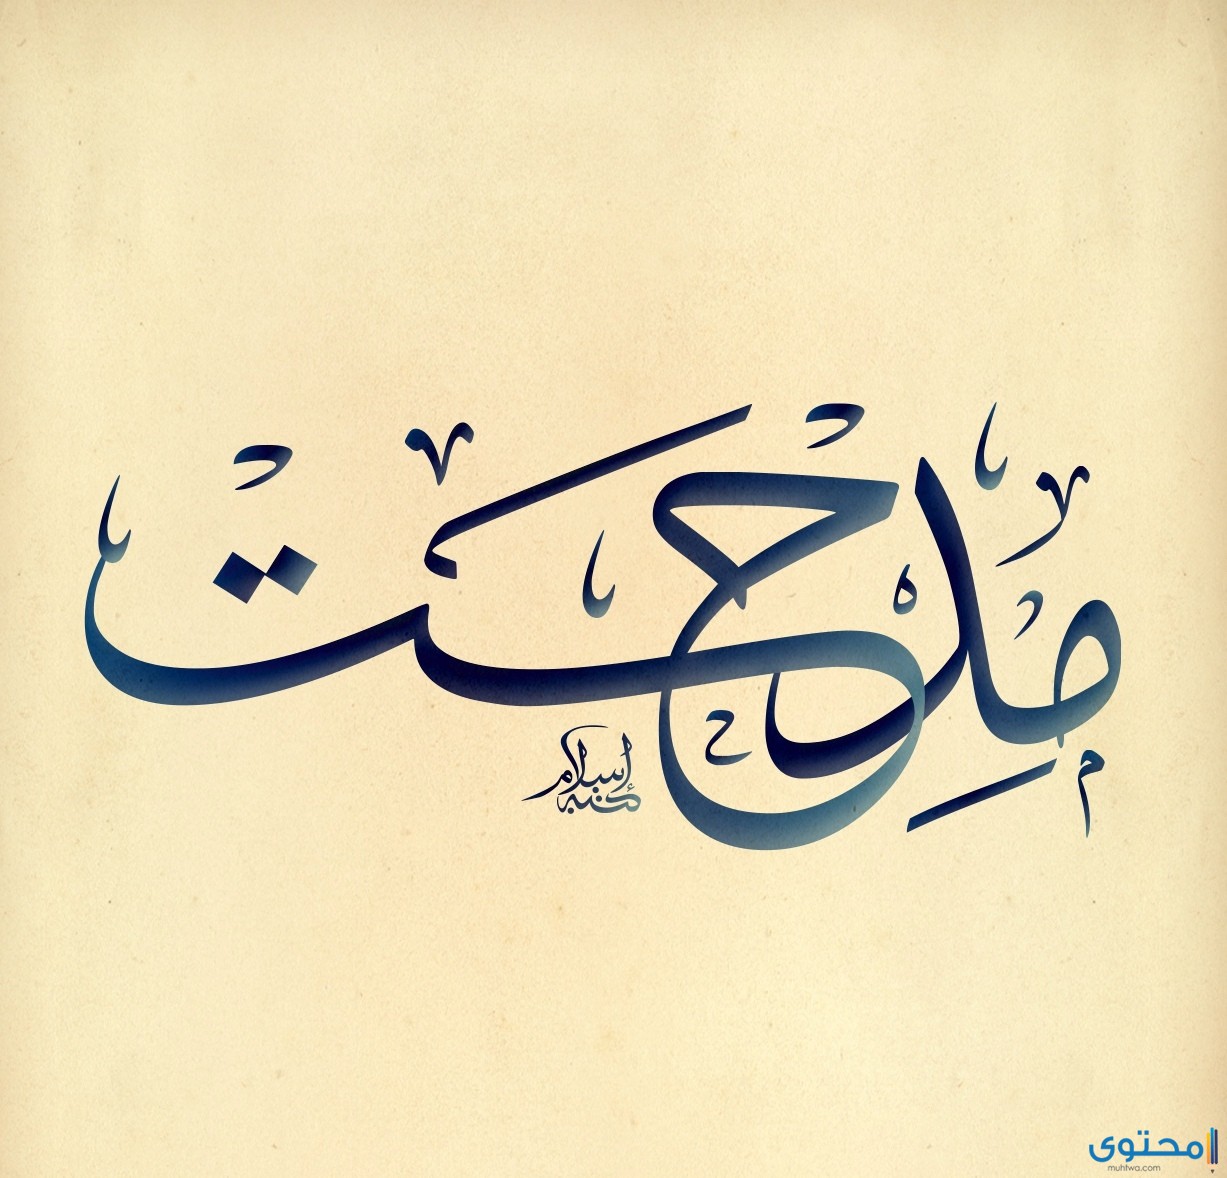 مِدحَت
كتبه إسلام
محتوى
muhtwa.com